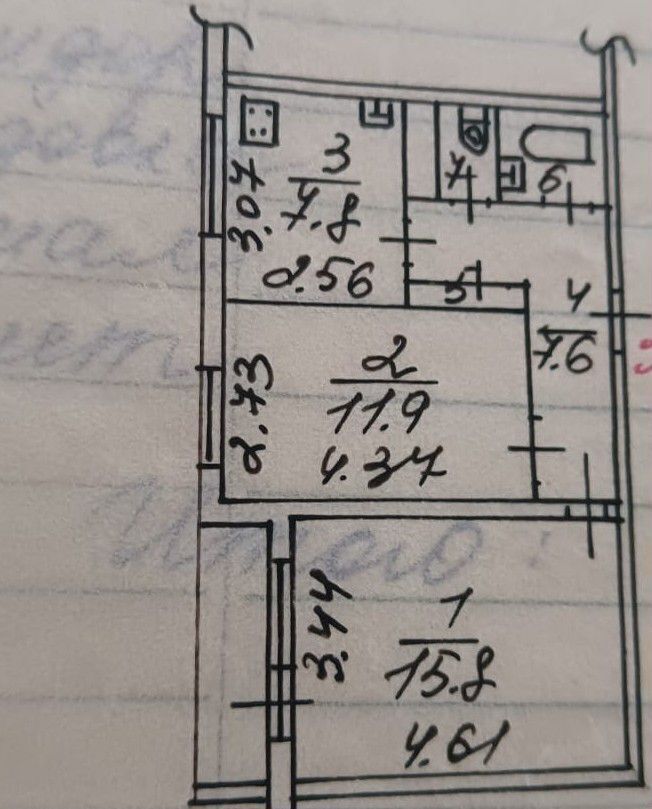 3
7.8
3.07
2.56
7
6
5
4
7.6
2
11.9
2.73
4.37
Итого:
1
15.8
3.44
4.61